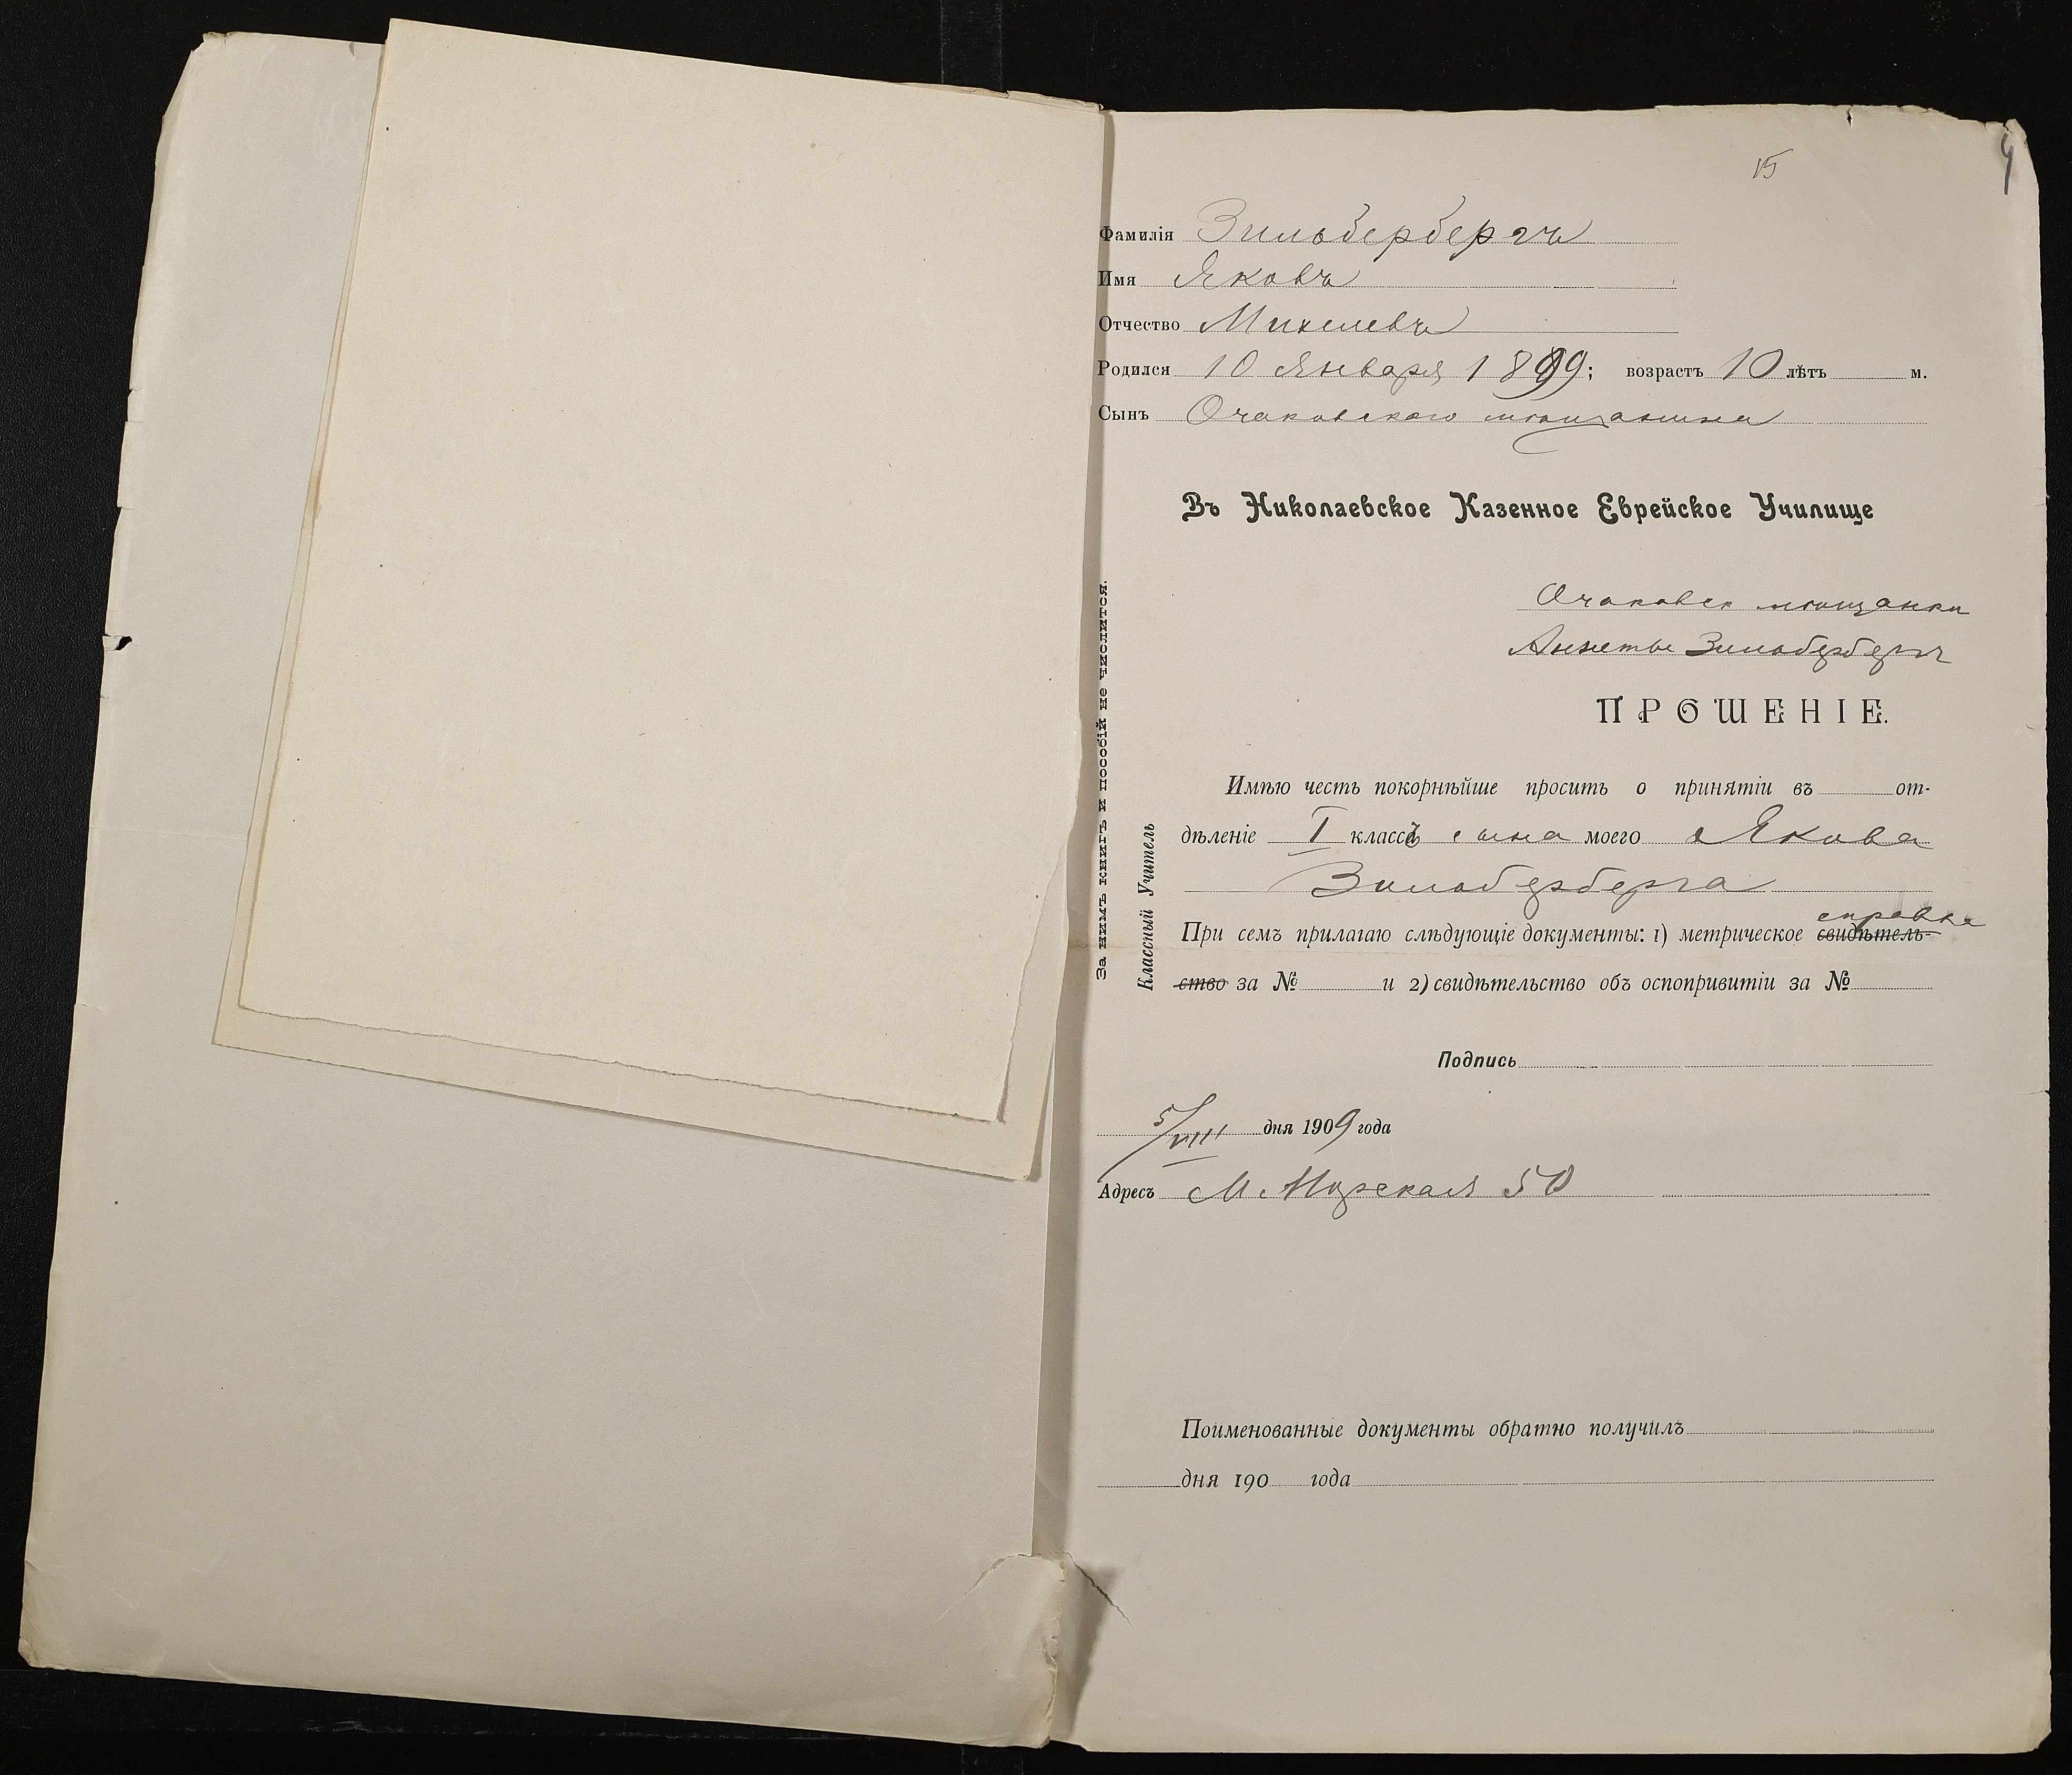 15
4
Фамилія Зильбербергъ
Имя Яковъ
Отчество Михелевъ
Родился 10 Января 1899; возрастъ 10 лѣтъ м.
Сынъ Очаковскаго мѣщанина
Въ Николаевское Казенное Еврейское Училище
Очаковск мѣщанки
Аннеты Зильбербергъ
ПРОШЕНІЕ.
Имѣю честь покорнѣйше просить о принятіи въ от-
дѣленіе I класса сына моего Якова
Зильберберга
справка
При семъ прилагаю слѣдующіе документы: 1) метрическое свидѣтель-
ство за № и 2) свидѣтельство объ оспопривитіи за №
Подпись
5/VIII дня 1909 года
Адресъ М. Морская 50
Поименованные документы обратно получилъ
дня 190 года
За нимъ книгъ и пособій не числится.
Классный Учитель